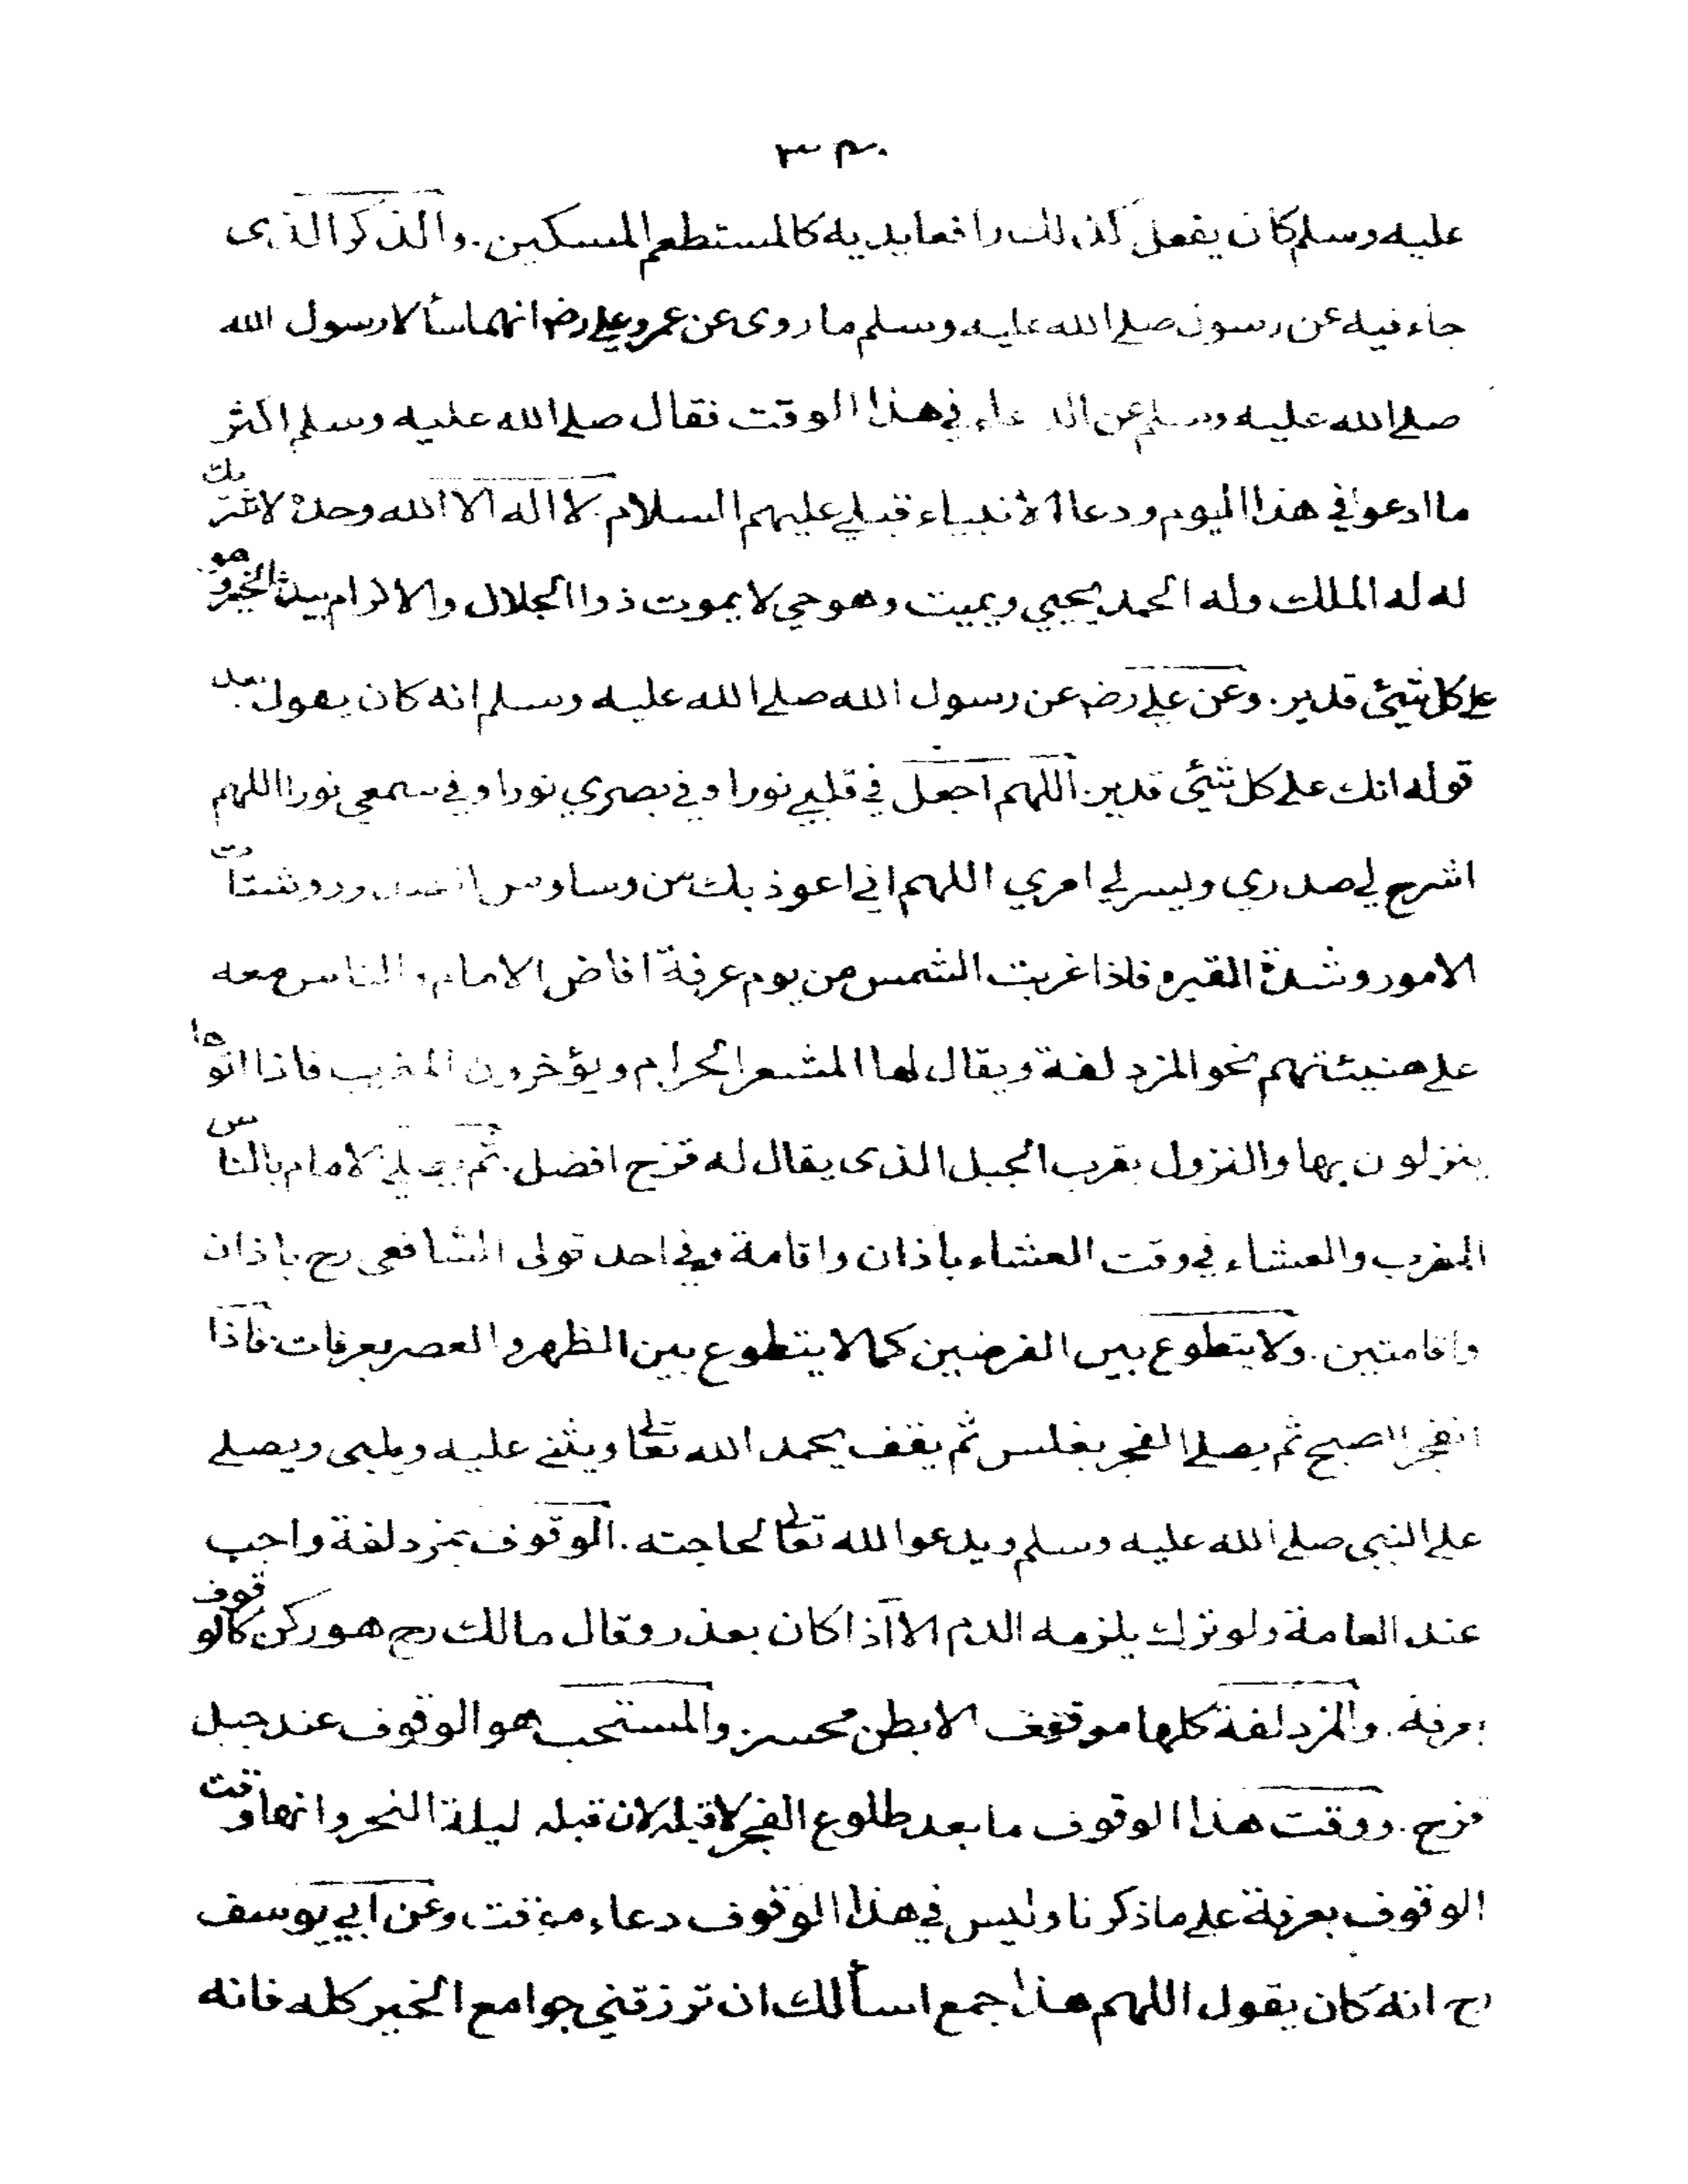 ٣٣٠
عليه وسلم كان يفعل كذلك رافعا يديه كالمستطعم المسكين. والذكر الذى
جاء فيه عن رسول صلے الله عليه وسلم ما روى عن عمر وعلے رضـ انهما سألا رسول الله
صلے الله عليه وسلم عن الدعاء في هذا الوقت فقال صلے الله عليه وسلم اكثر
ما ادعوا في هذا اليوم ودعا الأنبياء قبلي عليهم السلام لا اله الا الله وحدهٗ لا شريك
له له الملك وله الحمد يحيي ويميت وهو حي لا يموت ذوا الجلال والاكرام بيده الخير وهو
علے كل شيئ قدير. وعن علے رضـ عن رسول الله صلے الله عليه وسلم انه كان يقول بعد
قوله انك علے كل شيئ قدير اللهم اجعل في قلبي نورا وفي بصري نورا وفي سمعي نورا اللهم
اشرح لي صدري ويسر لي امري اللهم اني اعوذ بك من وساوس وشتات
الامور وشدة القبر وفاذا غربت الشمس من يوم عرفة افاض الامام والناس معه
علے هنيئتهم نحو المزدلفة ويقال لها المشعر الحرام ويؤخرون المغرب فاذا اتوها
ينزلون بها والنزول بقرب الجبل الذى يقال له قزح افضل. ثم يصلي الامام بالناس
المغرب والعشاء في وقت العشاء باذان واقامة وفي احد قولى الشافعى رح باذان
واقامتين. ولا يتطوع بين الفرضين كما لا يتطوع بين الظهر والعصر بعرفات. فاذا
انفجر الصبح ثم يصلے الفجر بغلس ثم يقف يحمد الله تعالى ويثنے عليه ويلبى ويصلے
علے النبى صلے الله عليه وسلم ويدعوا لله تعالى لحاجته. الوقوف بمزدلفة واجب
عند العامة ولو ترك يلزمه الدم الا اذا كان بعذر وقال مالك رح هو ركن كالوقوف
بعرفة. والمزدلفة كلها موقف الا بطن محسر والمستحب هو الوقوف عند جبل
قزح. ووقت هذا الوقوف ما بعد طلوع الفجر لا قبله لان قبله ليلة النحر وانها وقت
الوقوف بعرفة علے ما ذكرنا وليس في هذا الوقوف دعاء موقت وعن ابي يوسف
رح انه كان يقول اللهم هذا جمع اسألك ان ترزقني جوامع الخير كله فانه